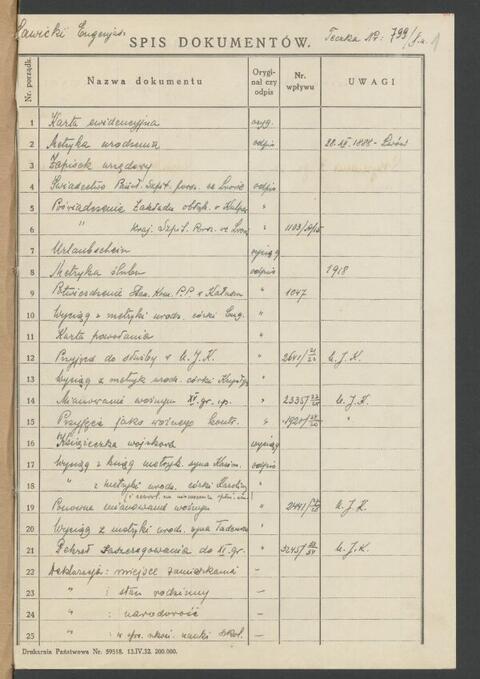 Sawicki Eugenjusz
SPIS DOKUMENTÓW. Teczka Nr: 799/
Nr. porządk. Nazwa dokumentu Orygi- nał czy odpis Nr. wpływu UWAGI
1 Karta ewidencyjna oryg.
2 Metryka urodzenia odpis 1888 - Lwów
3 Zapisek urzędowy
4 Świadectwo we Lwowie odpis
5 Poświadczenie Zakładu obłąk. w Kulpar. "
6 " Kraj. Szpit. we Lwow "
7 Urlaubschein wyciąg
8 Metryka ślubu odpis 1918
9 Potwierdzenie Kom. P.P. w " 1047
10 Wyciąg z metryki urodz. córki Eug. "
11 Karta powołania "
12 Przyjęd do służby w U.J.K. " 2641/ U.J.K.
13 Wyciąg z metryk urodz. córki "
14 Mianowanie woźnym XI. gr. " 2335/ U.J.K.
15 Przyjęcie jako woźnego kontr. " 1921/ "
16 Książeczka wojskowa wyciąg
17 Wyciąg z ksiąg metryk. syna Kazim. odpis
18 " z metryki urodz. córki Karoliny "
19 Ponowne mianowanie woźnym " 2441/ U.J.K.
20 Wyciąg z metryki urodz. syna Tadeusza "
21 Dekret zaszeregowania do XI. gr. " 32457/ U.J.K.
22 Deklaracja: miejsce zamieszkania —
23 " : stan rodzinny —
24 " : narodowość —
25 " : w spr. nauki szkol. —
Drukarnia Państwowa Nr. 59518. 13.IV.32. 200.000.